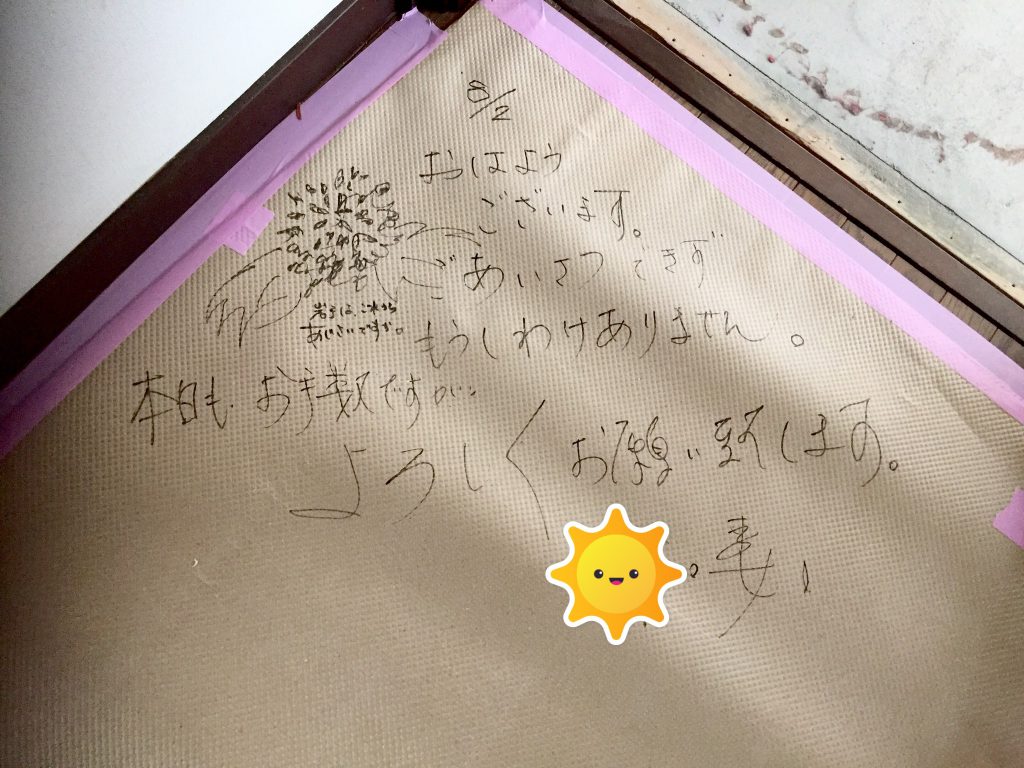 8/2
おはよう
ございます。
ごあいさつできず
もうしわけありません。
岩手は、これから
あじさいですが。
本日も、お手数ですが…
よろしくお願い致します。
妻